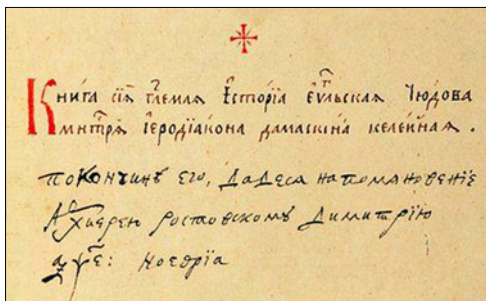 Книга сїѧ гл҃емаѧ Їсторїа еѵⷢ҇льскаѧ Чюдова
мнⷭ҇трѧ іеродїакона дамаскїна келейнаѧ .
покончинѣ его, дадеса на помановенїе
Архиерею ростовскомꙋ Димитрїю
҂аѱе: ноеврїа